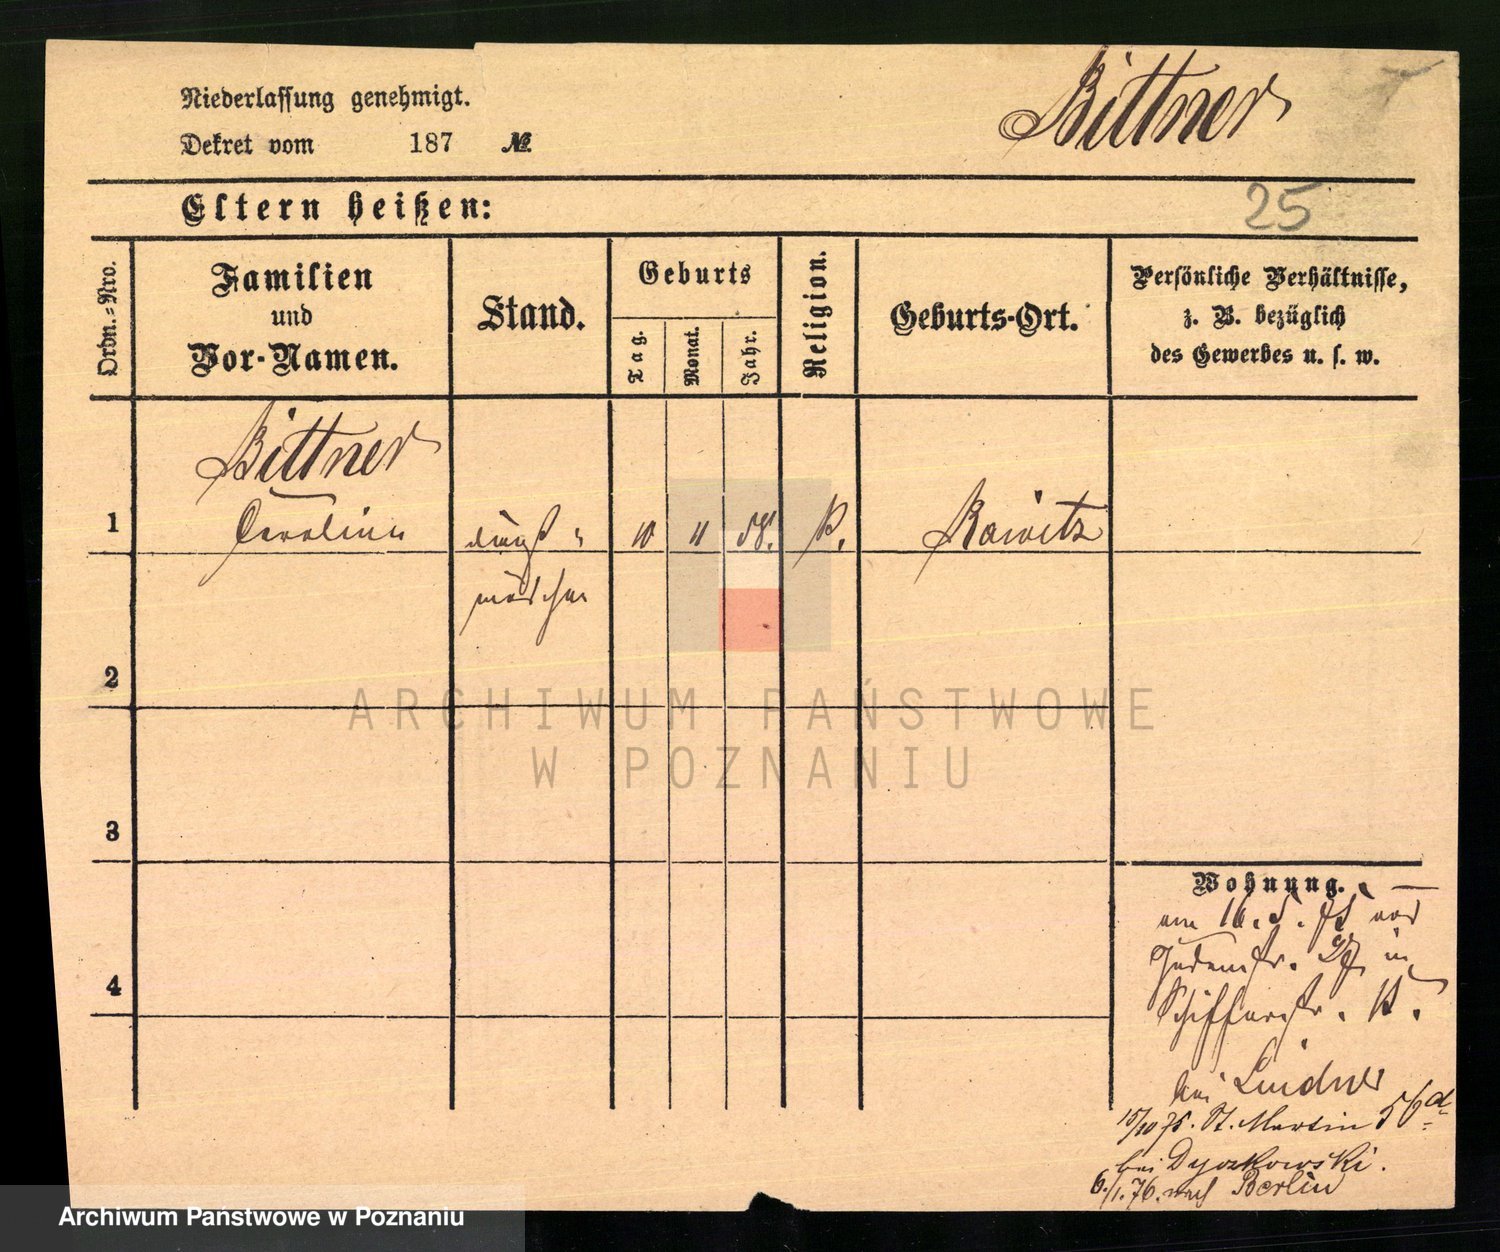 Niederlassung genehmigt.
Dekret vom 187 №
Bittner
Eltern heißen:
25
Ordn.-Nro.
Familien
und
Vor-Namen.
Stand.
Geburts
Tag.
Monat.
Jahr.
Religion.
Geburts-Ort.
Persönliche Verhältnisse,
z. B. bezüglich
des Gewerbes u. s. w.
Bittner
1 Carolina 10 11 58. K. Rawitz
mädchen
2
ARCHIWUM PAŃSTWOWE
W POZNANIU
3
Wohnung.
am 16. 5. 75
Judenstr. in
4
Schifferstr.
bei Lindner
15/10 75. St. Martin 56
bei Dyczkowski.
6./1. 76. nach Berlin
Archiwum Państwowe w Poznaniu